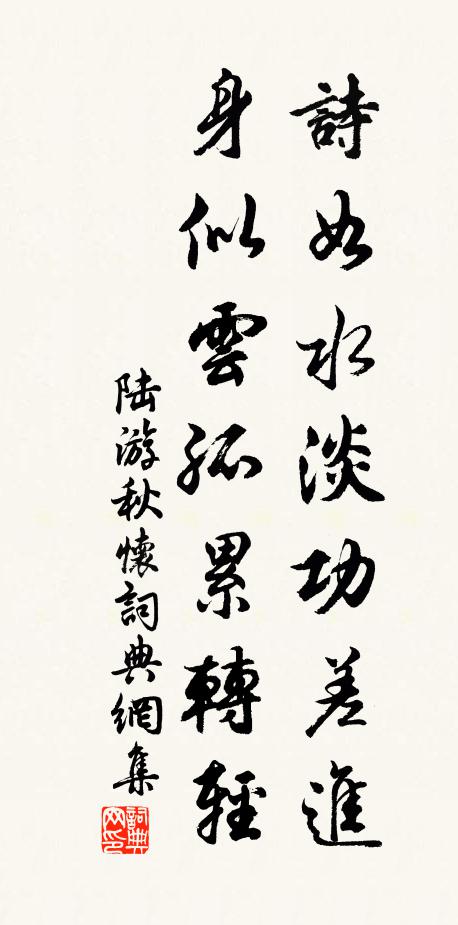 詩如水淡功差進
身似雲孤累轉輕
陸游秋懷詞典網集
詞典網印